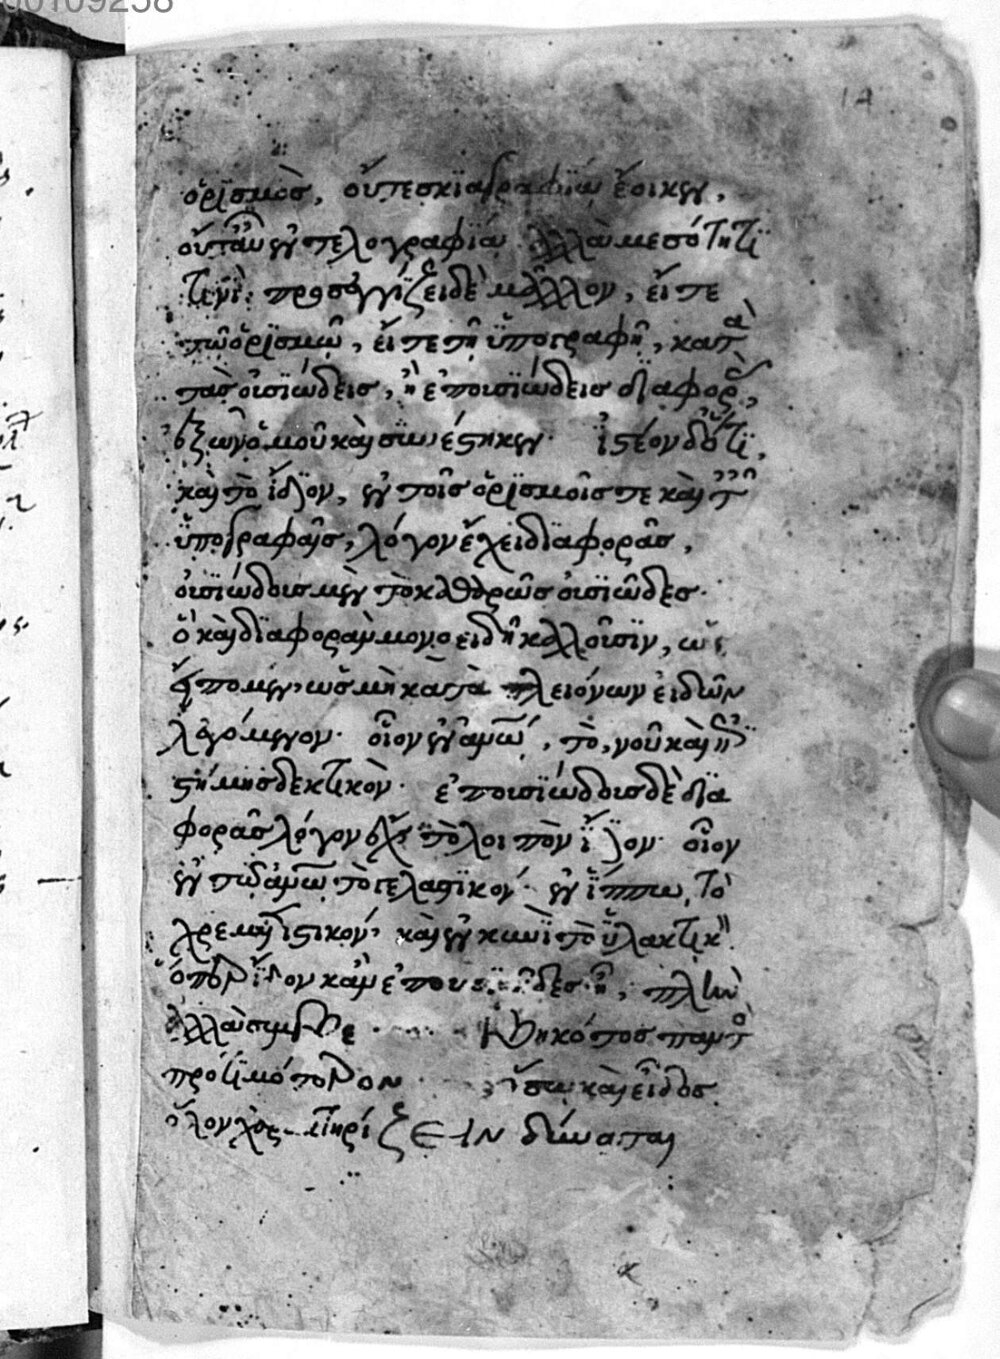 00109258
ὁρϊσμὸς, οὔτε σκϊαγραφϊαν ἔοικεν,
οὔτ' αὖ ἐντελογραφίαν ἀλλὰ μεσότητϊ
τινὶ προσεγγίζει δὲ μᾶλλον, εἴτε
τῶ ὁρϊσμῶ, εἴτε τῆ ὑπογραφῆ, κατὰ
τὰς οὐσϊώδεις, ἢ ἐπουσϊώδεις διαφορὰς,
ἐξ ὧν ὁμοῦ καὶ συνέστηκεν. ἰστέον δ' ὅτϊ,
καὶ τὸ ἴδϊον, ἐν τοῖς ὁρϊσμοῖς τε καὶ ταῖς
ὑπογραφαῖς, λόγον ἔχει δϊαφορᾶς,
οὐσϊώδους μὲν τὸ καθαρῶς οὐσϊῶδες.
ὃ καὶ δϊαφορὰν μονοειδῆ καλλοῦσϊν, ὡς
εἴπομεν, ὡς μὴ κατὰ πλειόνων εἰδῶν
λεγόμενον. οἷον ἐν ἀνῶ, τὸ, νοῦ καὶ ἐπι
στήμης δεκτικὸν. ἐπουσϊώδους δὲ δϊα
φορᾶς λόγον ἔχει τὸ λοιπὸν ἴδϊον. οἷον
ἐν τῶ ἀνῶ τὸ γελαστϊκόν. ἐν ἵππω, τὸ
χρεμετιστικόν, καὶ ἐν κυνὶ τὸ ὑλακτικὸν.
ὅπερ ἴδϊον κἂν ἐπουσϊῶδες ἦ, πλὴν
ἀλλὰ συμβε κότος παντὸς
προτϊμότερον φύσιν καὶ εἶδος
ὅλον χαρακτηρίζειν δύναται